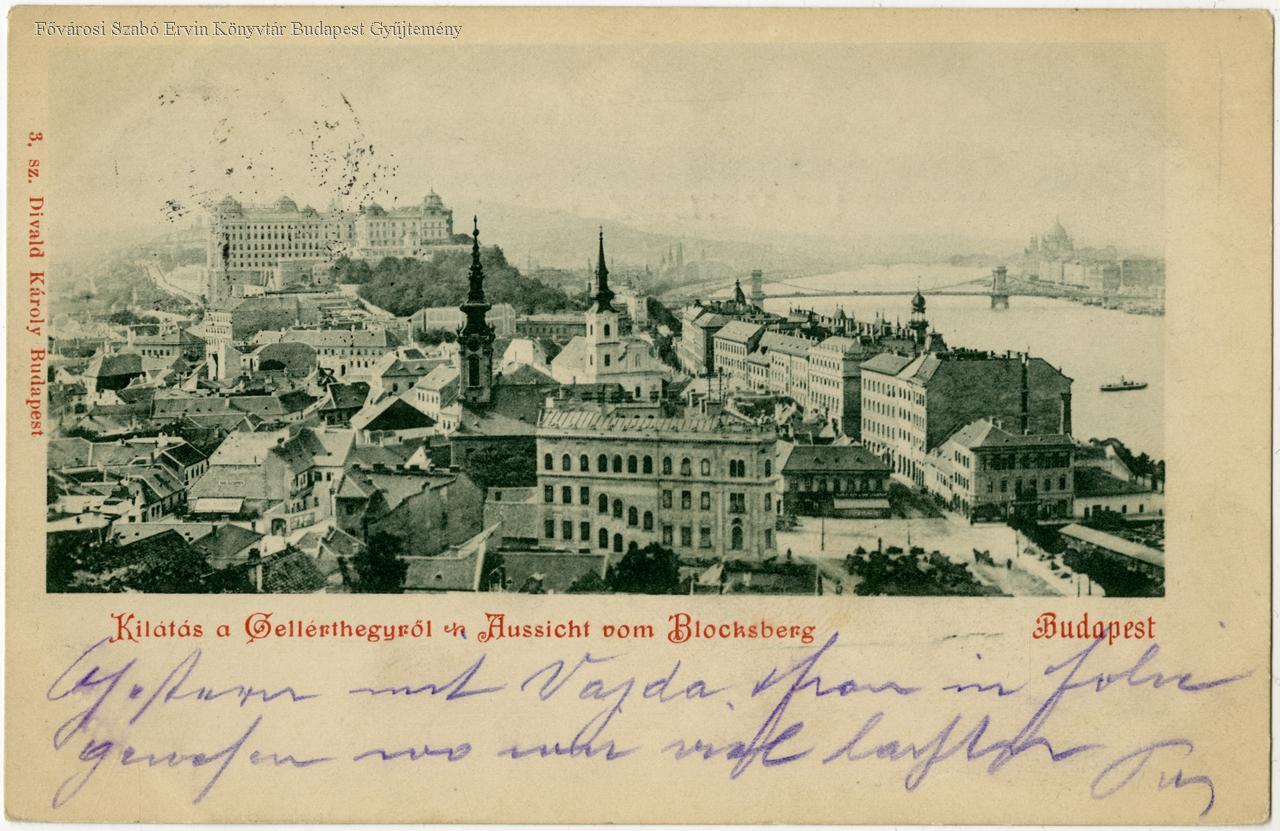 Fővárosi Szabó Ervin Könyvtár Budapest Gyűjtemény
3. sz. Divald Károly Budapest
Kilátás a Gellérthegyről Aussicht vom Blocksberg Budapest
Gestern mit Vajda in
gewesen wo wir viel